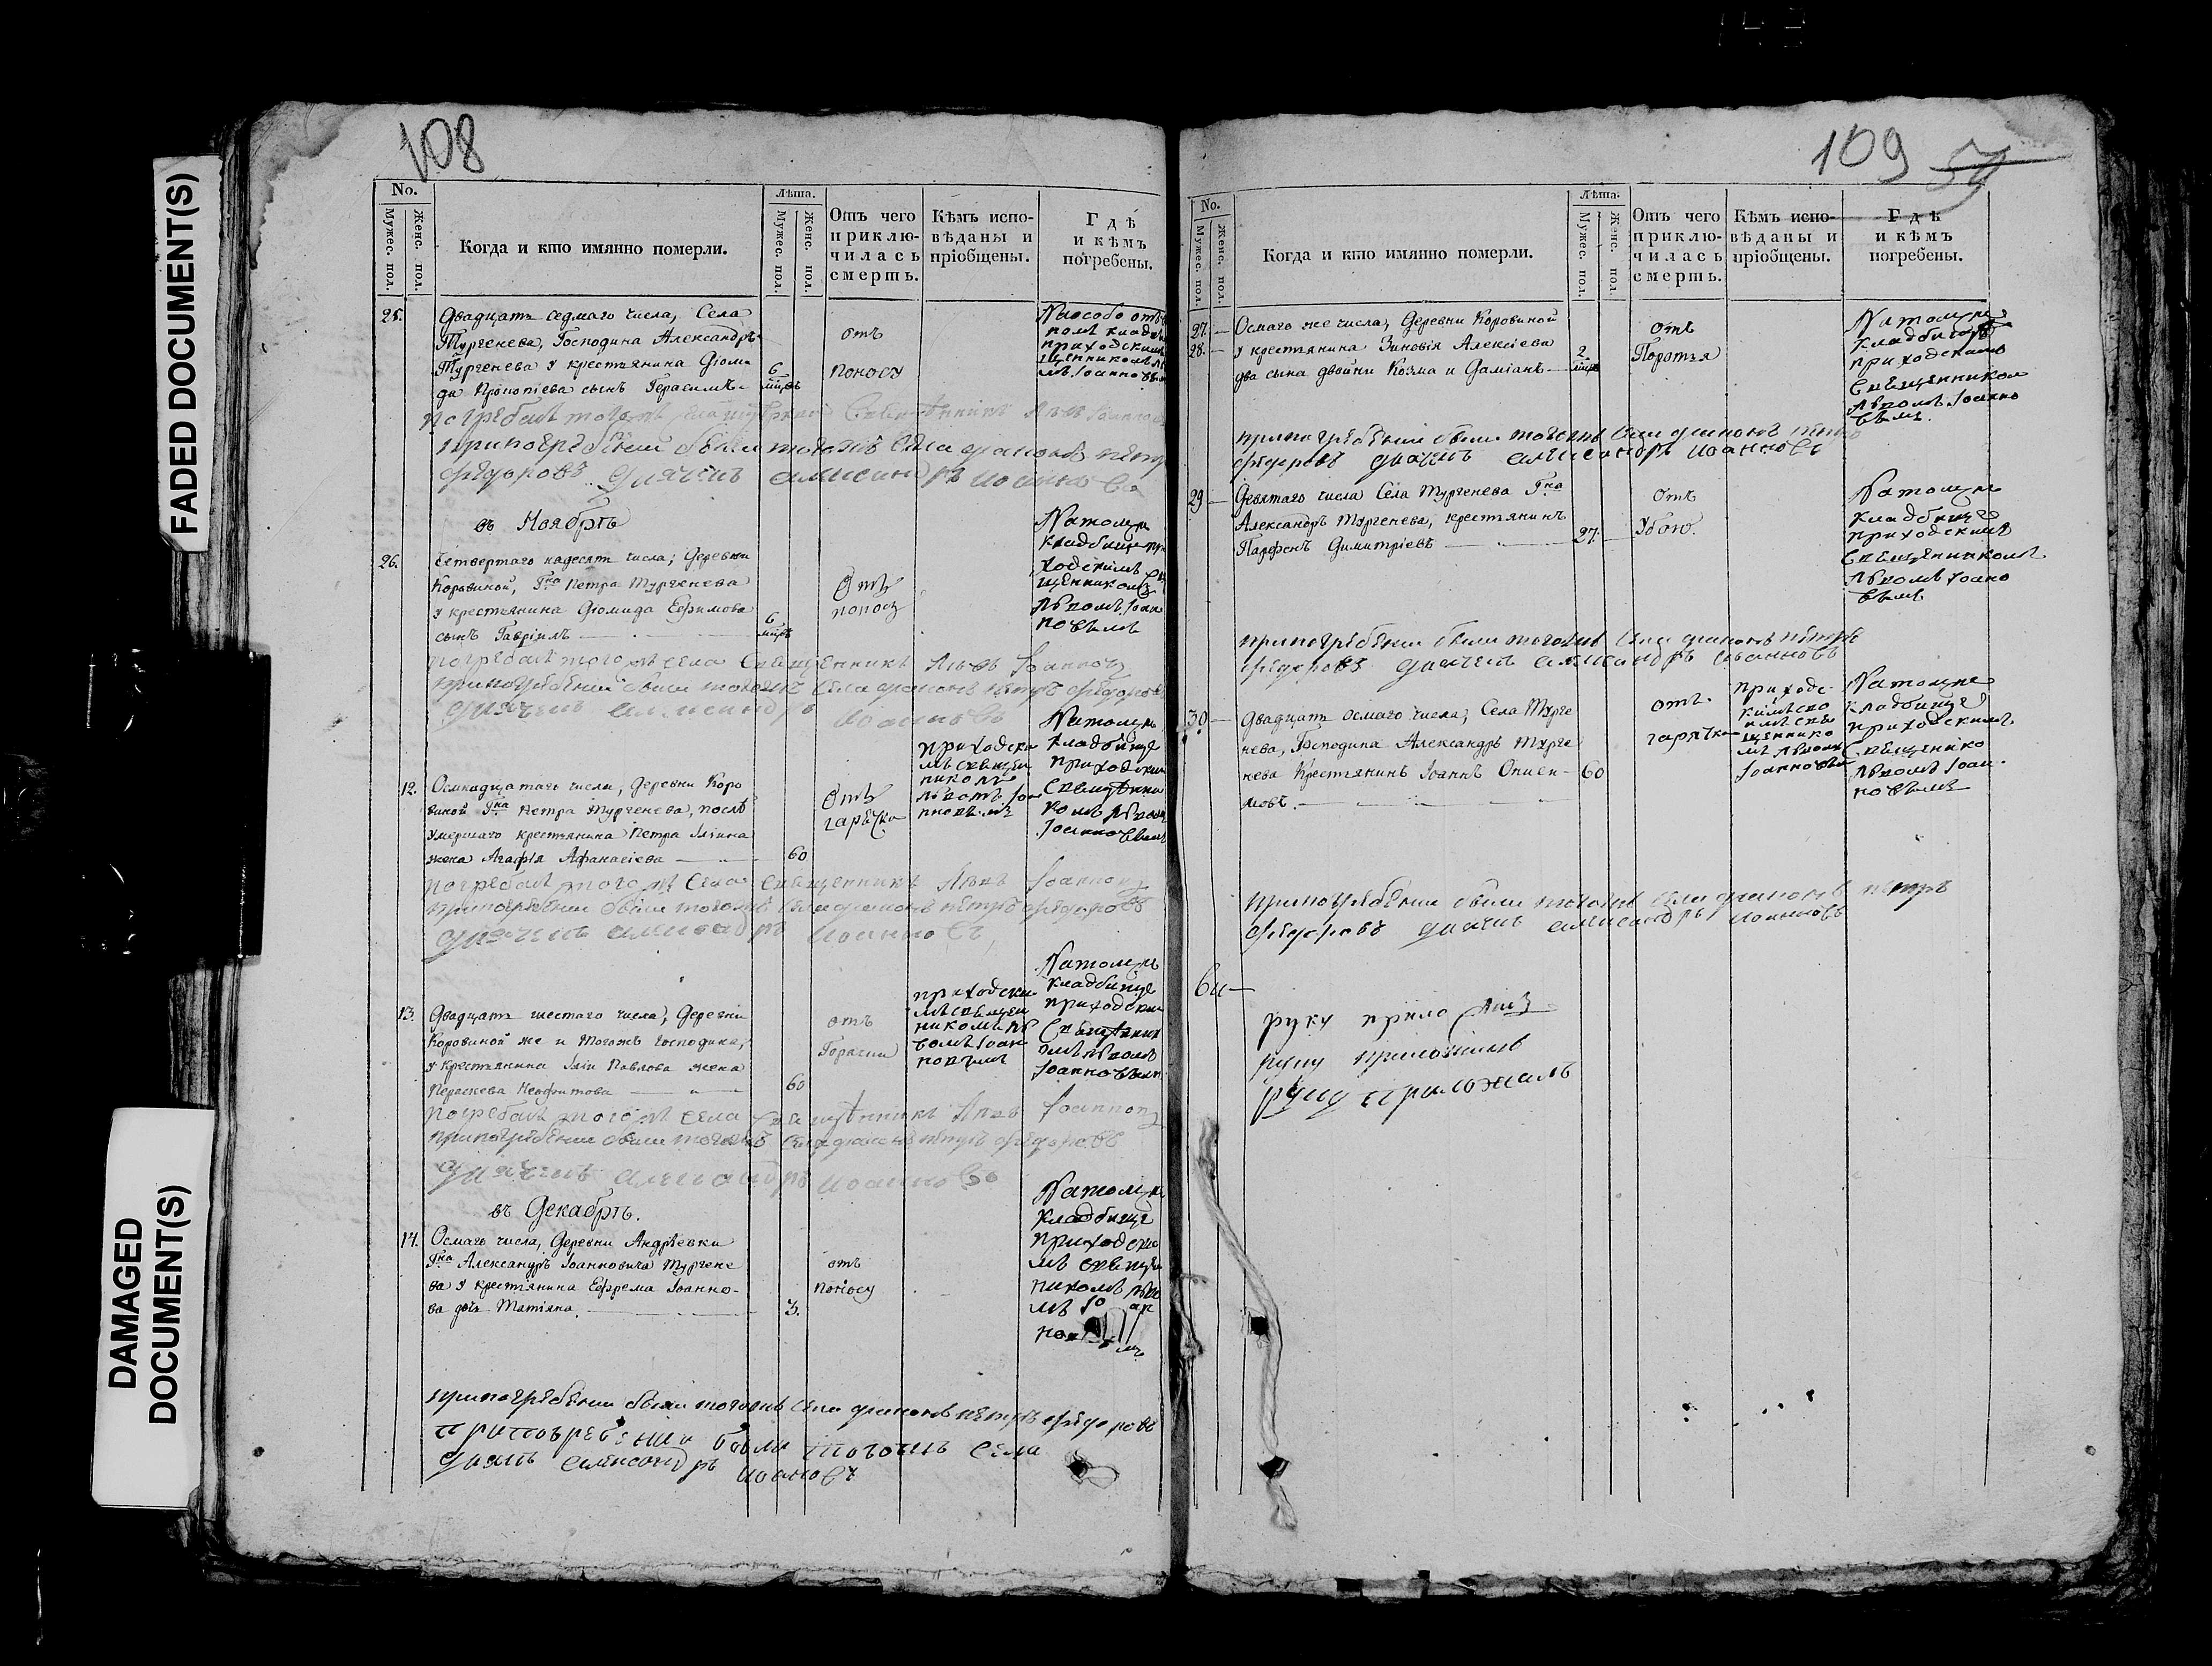 FADED DOCUMENT(S)
DAMAGED
DOCUMENT(S)
108
No.
Мужес. пол.
Женс. пол.
Когда и кто имянно померли.
Лѣта.
Мужес. пол.
Женс. пол.
Отъ чего
приклю-
чилась
смерть.
Кѣмъ испо-
вѣданы и
пріобщены.
Гдѣ
и кѣмъ
погребены.
25.
Двадцать седмаго числа, Села
Тургенева, Господина Александръ
Тургенева у крестьянина Діоми
да Прокопіева сынъ Герасимъ
6
отъ
поносу
при погребении были тогожъ села дьяконъ петръ
федоровъ дьячекъ александръ иоанновъ
въ Ноябрѣ
26.
Четвертаго надесять числа; Деревни
Коровиной, Гна Петра Тургенева
у крестьянина Діомида Ефимова
сынъ Гавріилъ
6
Отъ
поносу
На томже
кладбище
погребалъ того жъ села Священникъ Левъ Іоанновъ
при погребении были тогожъ села дьяконъ петръ федоровъ
дьячекъ александръ иоанновъ
12.
Осмнадцатаго числа, Деревни Коро
виной Гна Петра Тургенева, послѣ
умершаго крестьянина Петра Иліина
жена Агафія Афанасіева
60
Отъ
гарячки
приходски
мъ священ
никомъ
На томже
кладбище
приходским
погребалъ того жъ села священникъ Левъ Іоанновъ
при погребении были тогожъ села дьяконъ петръ федоровъ
дьячекъ александръ иоанновъ
13.
Двадцать шестаго числа, Деревни
Коровиной же и Тогожъ господина,
у крестьянина Иліи Павлова жена
Параскева Неофитова
60
отъ
Горячки
приходски
мъ священ
никомъ Ль
вомъ Іоан
новымъ
На томже
кладбище
приходским
погребалъ того жъ села священникъ Левъ Іоанновъ
при погребении были тогожъ села дьяконъ петръ федоровъ
дьячекъ александръ иоанновъ
въ Декабрѣ.
14.
Осмаго числа, Деревни Андрѣевки
Гна Александръ Іоанновича Тургене
ва у крестьянина Ефрема Іоанно-
ва дочь Татіяна
3.
отъ
поносу
На томже
кладбище
приходски
мъ священ
никомъ
при погребении были тогожъ села дьяконъ петръ федоровъ
при погребении были тогожъ села
дьячекъ александръ иоановъ
109
No.
Мужес. пол.
Женс. пол.
Когда и кто имянно померли.
Лѣта.
Мужес. пол.
Женс. пол.
Отъ чего
приклю-
чилась
смерть.
Кѣмъ испо-
вѣданы и
пріобщены.
Гдѣ
и кѣмъ
погребены.
27.
28.
Осмаго же числа, Деревни Коровиной
у крестьянина Зиновія Алексіева
два сына двойни Козма и Даміанъ
2.
отъ
На томже
кладбище
приходскимъ
Священником
Львомъ Іоанно
вымъ.
при погребении были тогожъ села дьяконъ петръ
федоровъ дьячекъ александръ иоанновъ
29
Девятаго числа Села Тургенева Гна
Александръ Тургенева, крестьянинъ
Парфенъ Димитріевъ
27.
Отъ
Убою.
На томже
кладбище
приходскимъ
Священникомъ
Львомъ Іоано
вымъ
при погребении были тогожъ села дьяконъ петръ
федоровъ дьячекъ александръ иоанновъ
30
Двадцать осмаго числа; Села Турге
нева, Господина Александръ Турге
нева Крестьянинъ Іоаннъ Ониси-
мовъ.
60
отъ
гарячки
На томже
кладбище
приходскимъ
Священнико
Львомъ Іоан
новымъ
при погребении были тогожъ села дьяконъ петръ
федоровъ дьячекъ александръ иоанновъ
руку прило жилъ
руку приложилъ
руку приложилъ